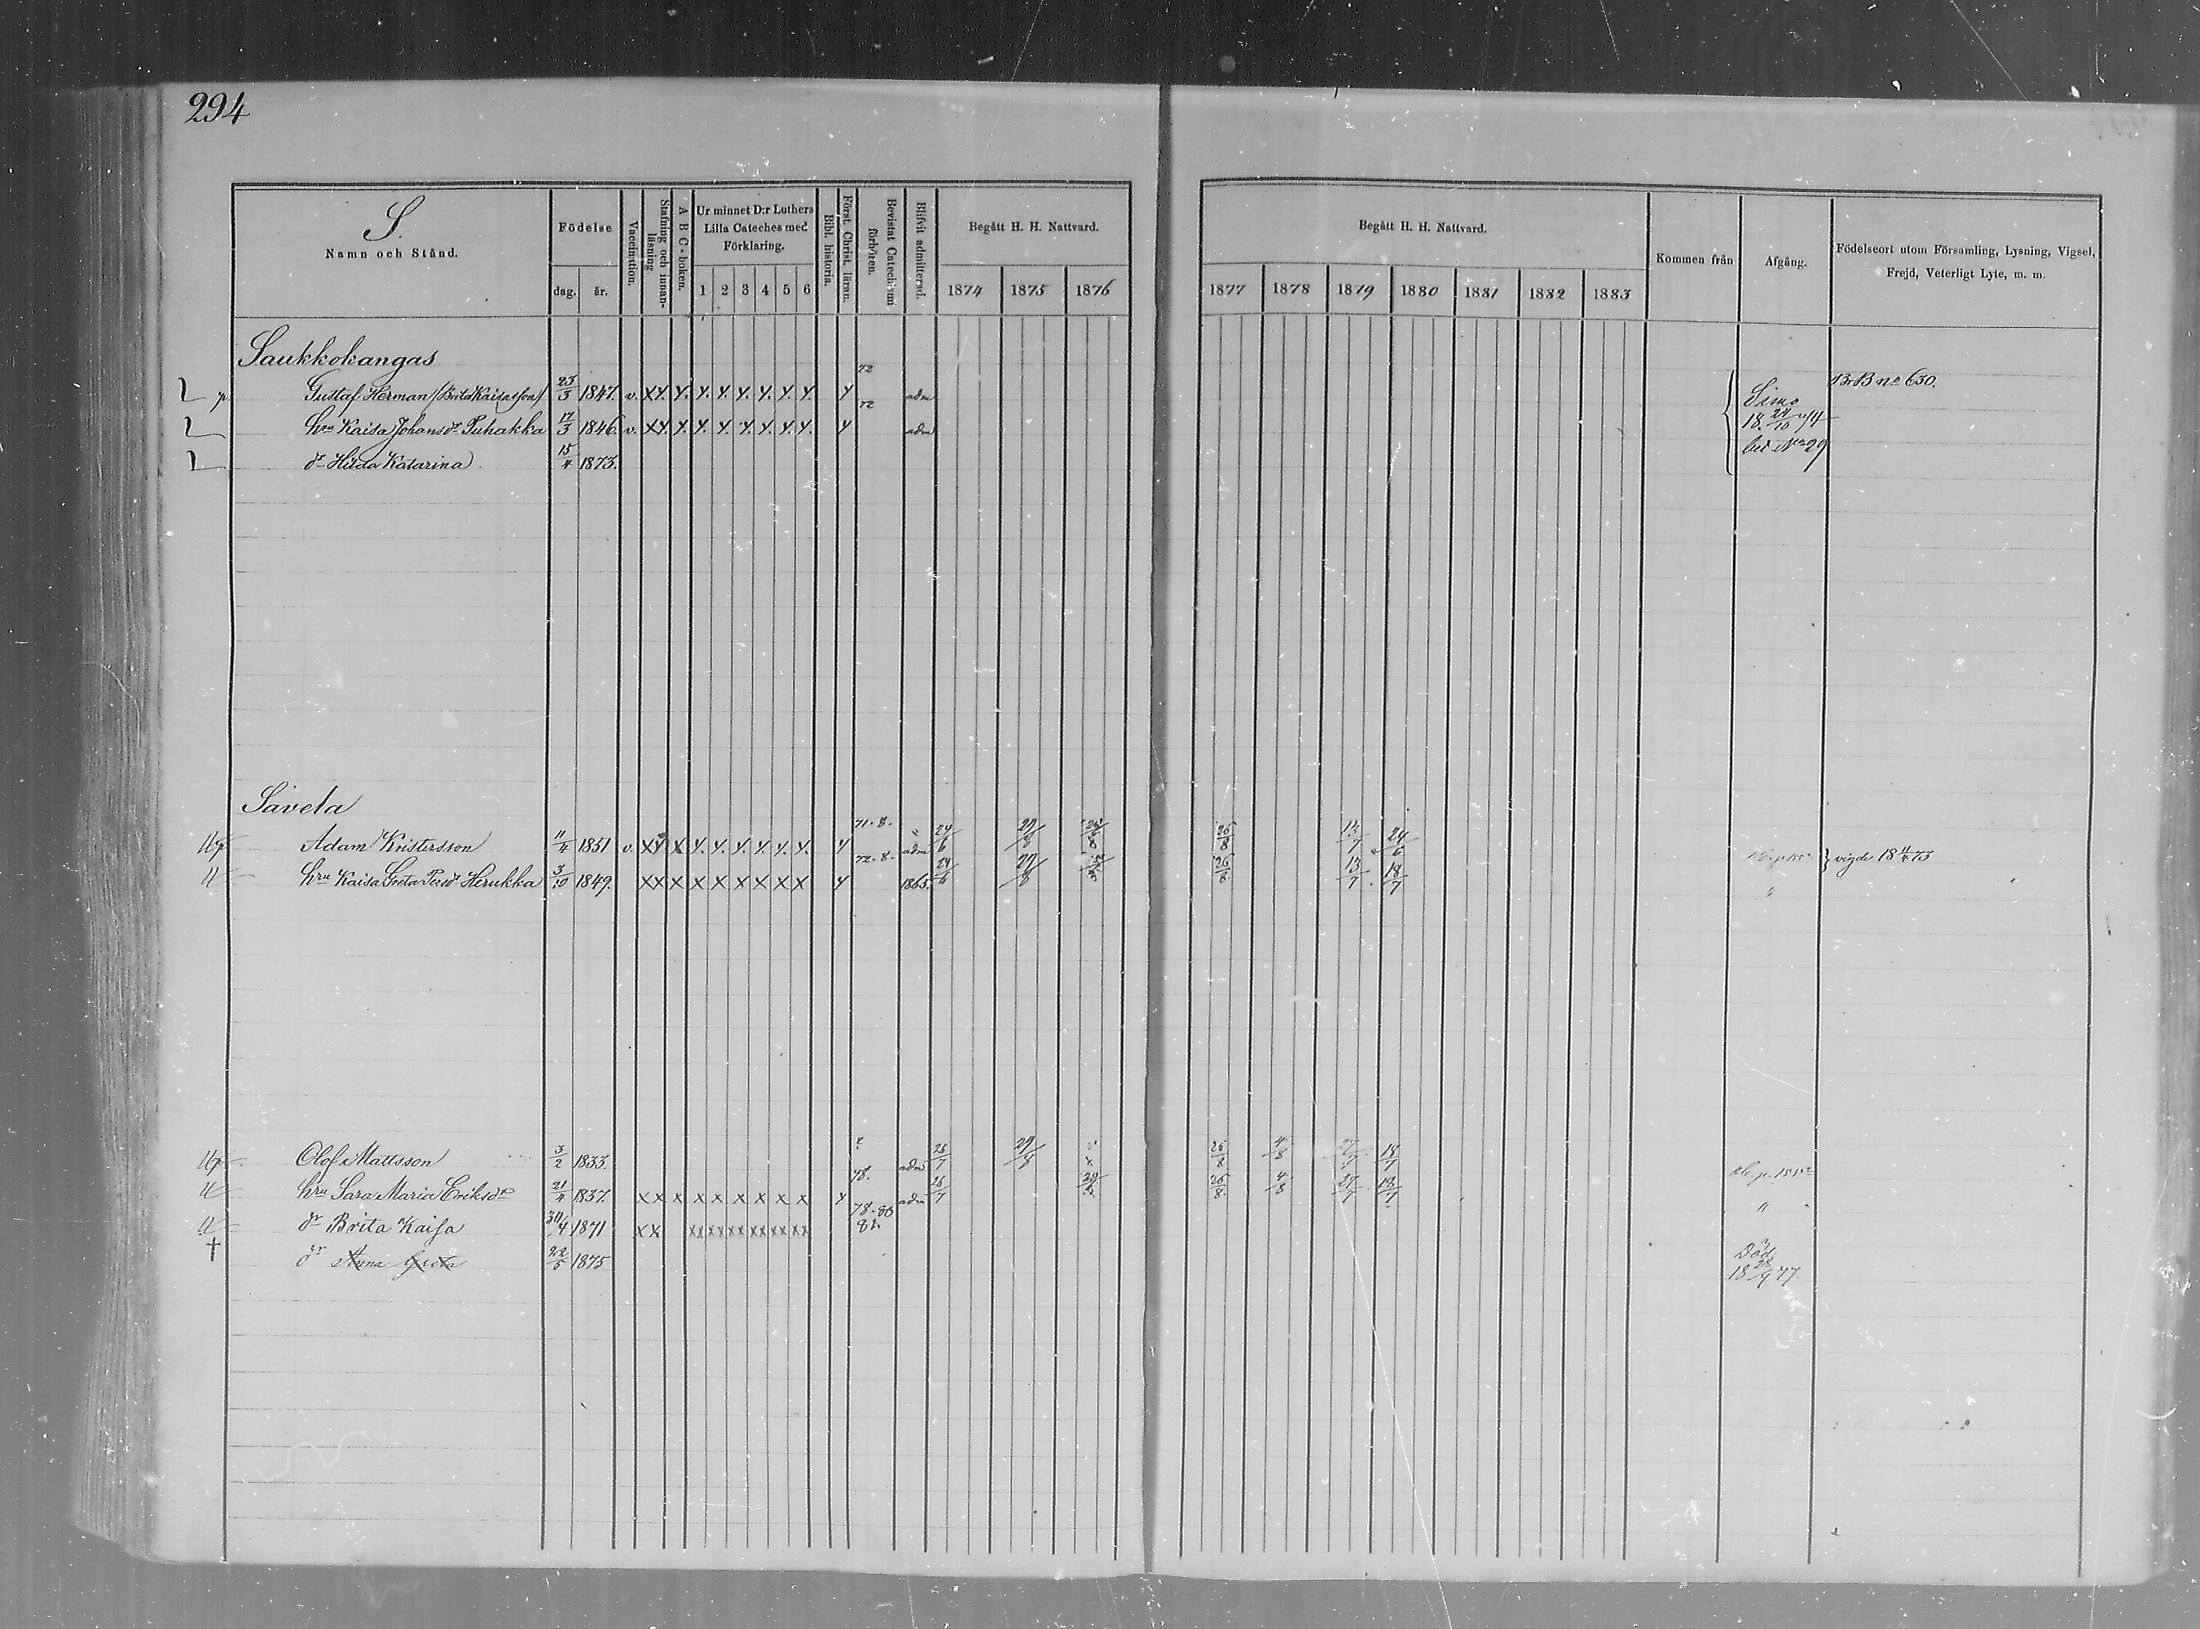 294
S.
Namn och Stånd.
Födelse
dag. år.
Vaccination.
Stafning och innanläsning
A B C-boken.
Ur minnet D:r Luthers Lilla Cateches med Förklaring.
1 2 3 4 5 6
Bibl. historia.
Först. Christ. läran.
Bevistat Catechismi förhören.
Blifvit admitterad.
Begått H. H. Nattvard.
1874 1875 1876
Begått H. H. Nattvard.
1877 1878 1879 1880 1881 1882 1883
Kommen från
Afgång.
Födelseort utom Församling, Lysning, Vigsel, Frejd, Veterligt Lyte, m. m.
Saukkokangas
72
Gustaf Herman (Brita Kaisasson) 23/3 1847. v. XY. Y. Y. Y. Y. Y. Y. Y. Y adm Simo BrB no 630.
72
hru Kaisa Johansdr Puhakka 17/3 1846. v. XY. Y. Y. Y. Y. Y. Y. Y. Y adm 18 24/10 74
dr Hilda Katarina. 15/4 1873. bet No 29
Sävelä
71. 8.
Adam Kristersson 11/4 1851 v. XY X Y. Y. Y. Y. Y. Y. Y adm 24/6 29/8 26/8 13/7 24/6 vigde 18 11/4 73
72. 8.
hru Kaisa Greta Persdr Herukka 3/10 1849. X X X X X X X X X Y 1865. 24/6 29/8 26/8 13/7 18/7 "
Olof Mattsson 3/2 1833. adm 26/7 29/8 26/8 4/8 27/7 18/7
78.
hru Sara Maria Eriksdr 21/4 1837. X X X X X X X X X Y adm 26/7 26/8 4/8 27/7 18/7 "
78. 80
dr Brita Kaisa 30/4 1871 X X XX XX XX XX XX XX 82.
† dr Anna Greta 22/5 1875 Död
18 28/9 77.